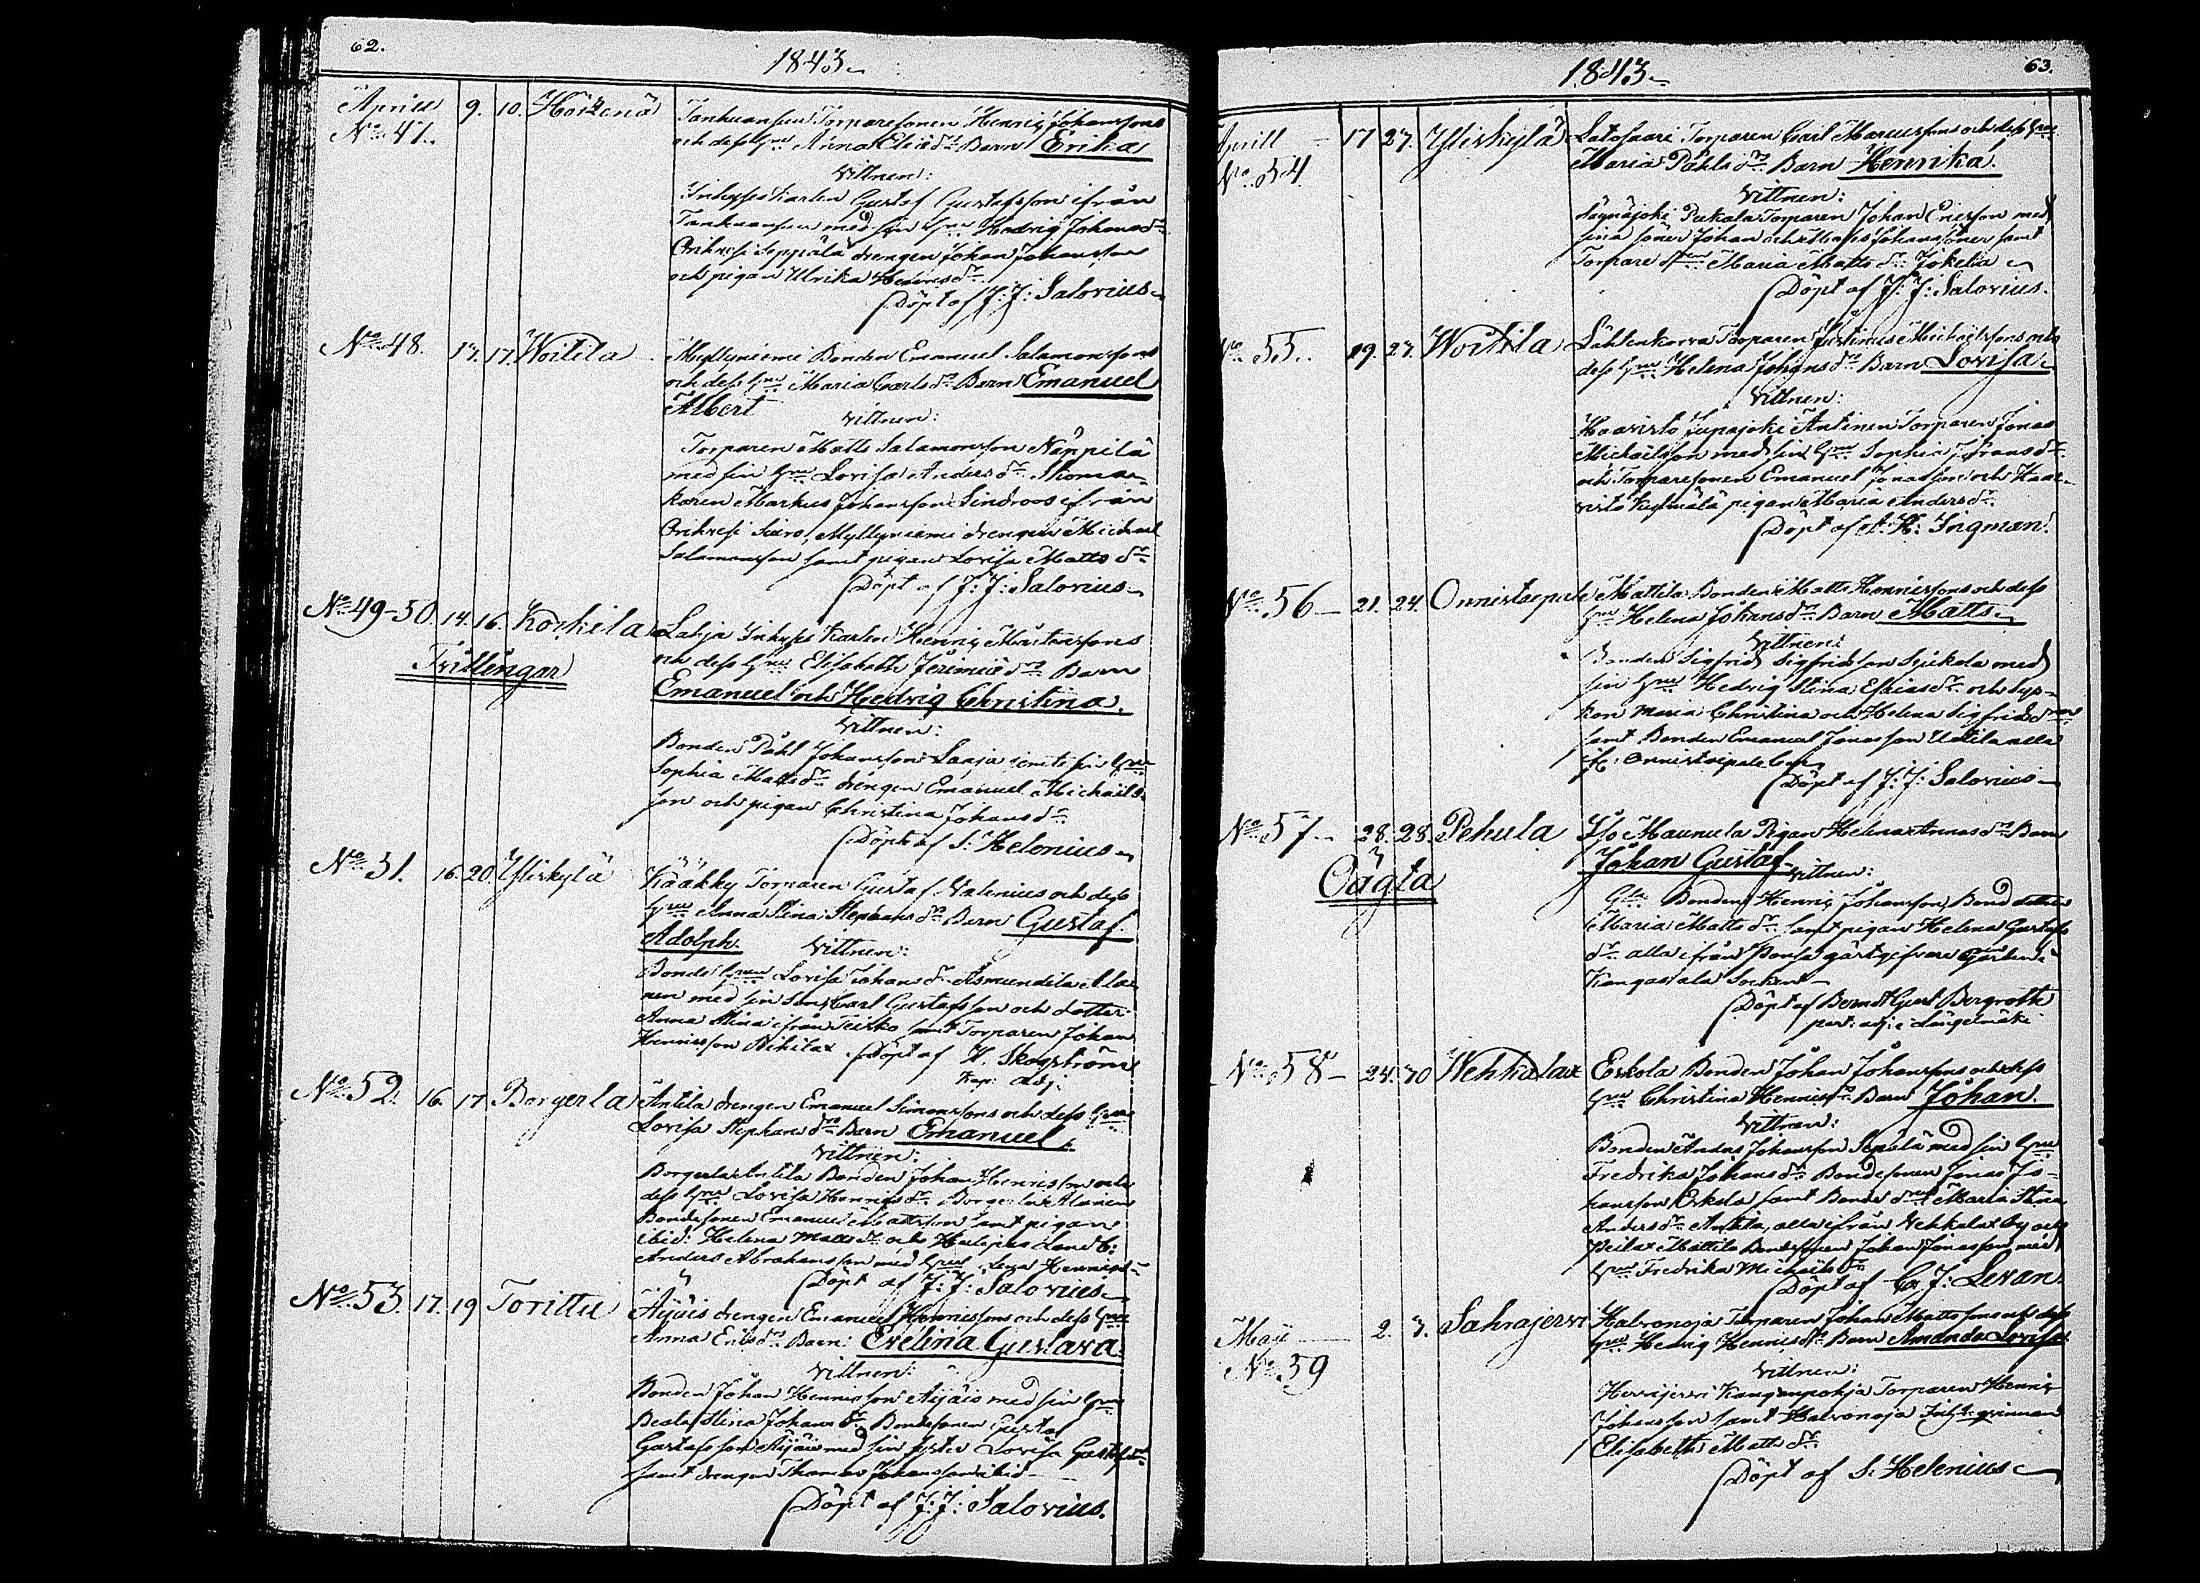 62.
1843.
Aprill 9. 10.
No 47.
och dess Hru Anna Elias dr Barn Erika
Vittnen:
Gustaf Gustafsson ifrån
med sin Hru Hedvig Johans dr
Orihvesi Seppälä drengen Johan Johansson
och pigan Ulrika Henrics dr
Döpt af J: J: Salovius.
No 48. 17. Woitila Myllyniemi Bonden Emanuel Salomonsson
och dess Hru Maria Carls dr Barn Emanuel
Albert
Vittnen:
Torparen Matts Salamonsson Näppilä
med sin Hru Lovisa Anders dr
Markus Johansson Lindroos ifrån
Orihvesi Myllyniemi drengen Michael
Salamonsson samt pigan Lovisa Matts dr
Döpt af J: J: Salovius
No 49-50. 14. 16. Korkila Henric
Trillingar och dess Hru Elisabeth Jeremias dr Barn
Emanuel och Hedvig Christina.
Vittnen:
Bonden Påhl Johansson Laaja jemte sin Hru
Sophia Matts dr drengen Emanuel Michaels-
son och pigan Christina Johans dr
Döpt af S. Helenius
No 51. 16. 20. Yliskylä Kääkky Torparen Gustaf Valenius och dess
Hru Anna Stina Stephans dr Barn Gustaf
Adolph. Vittnen:
Bonde Hru Lovisa Johans dr
nen med sin son Carl Gustafsson och dotter
Anna Stina ifrån Teisko samt Torparen Johan
Henricsson Döpt af H. Skogström
Kap: adj:
No 52. 16. 17. Borgerla Antila drengen Emanuel Simonsson och dess Hru
Lovisa Stephans dr Barn Emanuel.
Vittnen:
Borgerla Antila Bonden Johan Henricsson och
dess Hru Lovisa Henrics dr Borgerla Alanen
Bondesonen Emanuel Mattsson samt pigan
ibid: Helena Matts dr och
Anders Abrahamsson med Hru
Döpt af J: J: Salovius
No 53. 17. 19 Torittu Äijäis drengen Emanuel Henricsson och dess Hru
Anna Eriks dr Barn: Evelina Gustava.
Vittnen:
Bonden Johan Henricsson Äijäis med sin Hru
Beata Stina Johans dr Bondesonen Gustaf
Gustafsson Äijäis med sin syster Lovisa Gustafs dr
samt drengen Thomas Johansson ibid
Döpt af J: J: Salovius.
63.
1843
Aprill 17 27. Yliskylä Latosaari Torparen Carl Marcusson och dess Hru
No 54 Maria Påhls dr Barn Henrika.
Vittnen:
Torparen Johan Ericsson med
sina söner Johan och Matts Johanssöner samt
Torpare Maria Matts dr Jokela
Döpt af J: J: Salovius.
No 55. 19. 27. Woitila Lähtenkorva Torparen Justinus Michaelsson och
dess Hru Helena Johans dr Barn Lovisa
Vittnen:
Haavisto Antinen Torparen Jonas
Michaelsson med sin Hru Sophia
och Torparesonen Emanuel Jonasson och Haa-
visto pigan Maria Anders dr
Döpt af A. H. Ingman.
No 56 21. 24. Onnistaipale Mattila Bonden Matts Henricsson och dess
Hru Helena Johans dr Barn Matts
Vittnen:
Bonden Sigfrid Sigfridsson med
sin Hru Hedvig Stina Esaias dr och sys-
kon Maria Christina och Helena Sigfrids
samt Bonden Emanuel Jonasson alla
fr. Onnistaipale by
Döpt af J: J: Salovius
No 57 28. 28. Pehula Maunula Pigan Helena Annas dr Barn
Oägta Johan Gustaf
Vittnen:
Bonden Henric Johansson, Bond
Maria Matts dr samt pigan Helena Gustafs
dr alla ifrån gästgifvare Gården i
Kangasala Socken
Döpt af Bernd Gust Bergroth
past: adj: i Längelmäki
No 58 24. 30 Wehkalax Eskola Bonden Johan Johansson och dess
Hru Christina Henrics dr Barn Johan.
Vittnen:
Bonden Anders Johansson Sepälä med sin Hru
Fredrika Johans dr Bondesonen Jonas Jo-
hansson Eskola samt Bonde Maria Stina
Anders dr Antila, alla ifrån Vehkalax by och
Mattila Bondesonen Johan Jonasson med
Hru Fredrika Michaels dr
Döpt af C. J: Levan.
Maij 2. 7. Sahrajervi Torparen Johan Mattsson och dess
No 59 Hru Hedvig Henrics dr Barn Amanda Lovisa
Vittnen:
Kangenpohja Torparen Henric
Johansson samt qvinnan
Elisabeth Matts dr
Döpt af S. Helenius